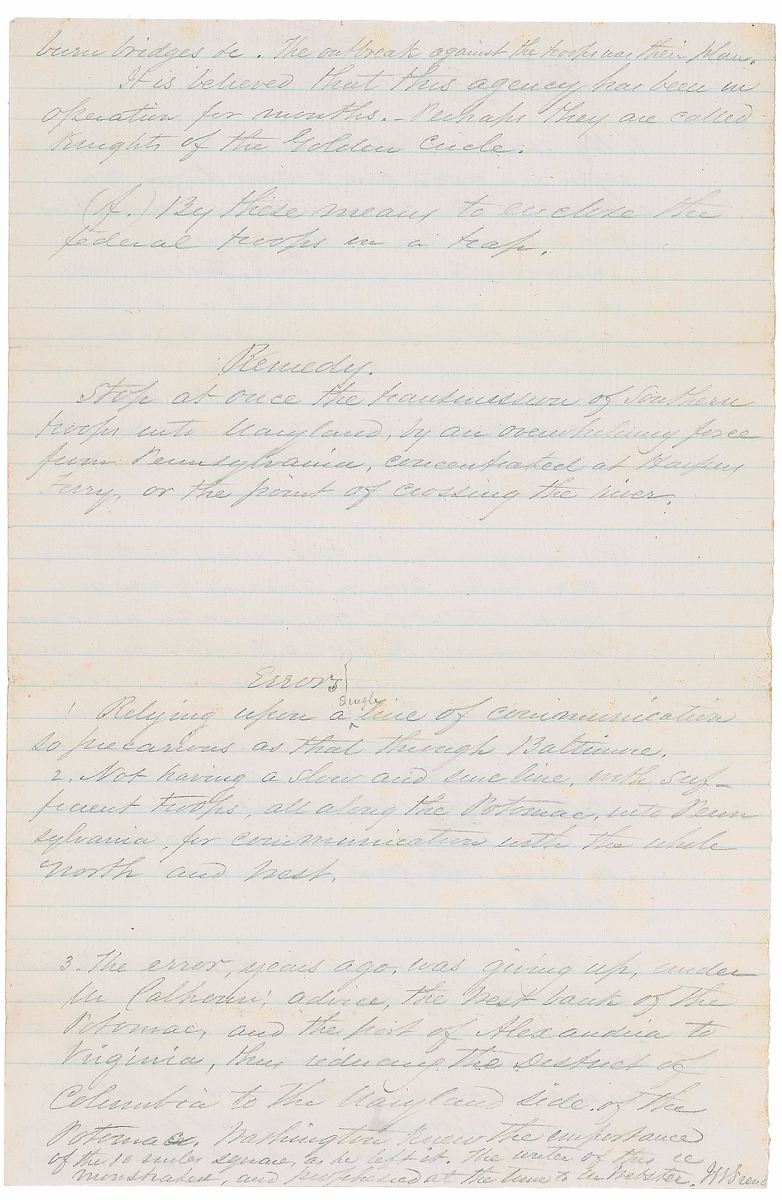 burn bridges &c. The outbreak against the troops was their plan.
It is believed that this agency has been in
operation for months. - Perhaps they are called
Knights of the Golden Circle.
(A.) By these means to enclose the
federal troops in a trap.
Remedy.
Stop at once the transmission of Southern
troops into Maryland, by an overwhelming force
from Pennsylvania, concentrated at Harpers
Ferry, or the point of crossing the river.
Errors
single
1 Relying upon a line of communication
so precarious as that through Baltimore.
2. Not having a slow and sure line, with suf-
ficient troops, all along the Potomac, into Penn
sylvania, for communication with the whole
North and West.
3. The error, years ago, was giving up, under
Mr Calhoun's advice, the West bank of the
Potomac, and the port of Alexandria to
Virginia, thus reducing the District of
Columbia to the Maryland side of the
Potomac. Washington knew the importance
of the 10 miles square, as he left it. The writer of this re
monstrated, and prophesied at the time to Mr Webster.